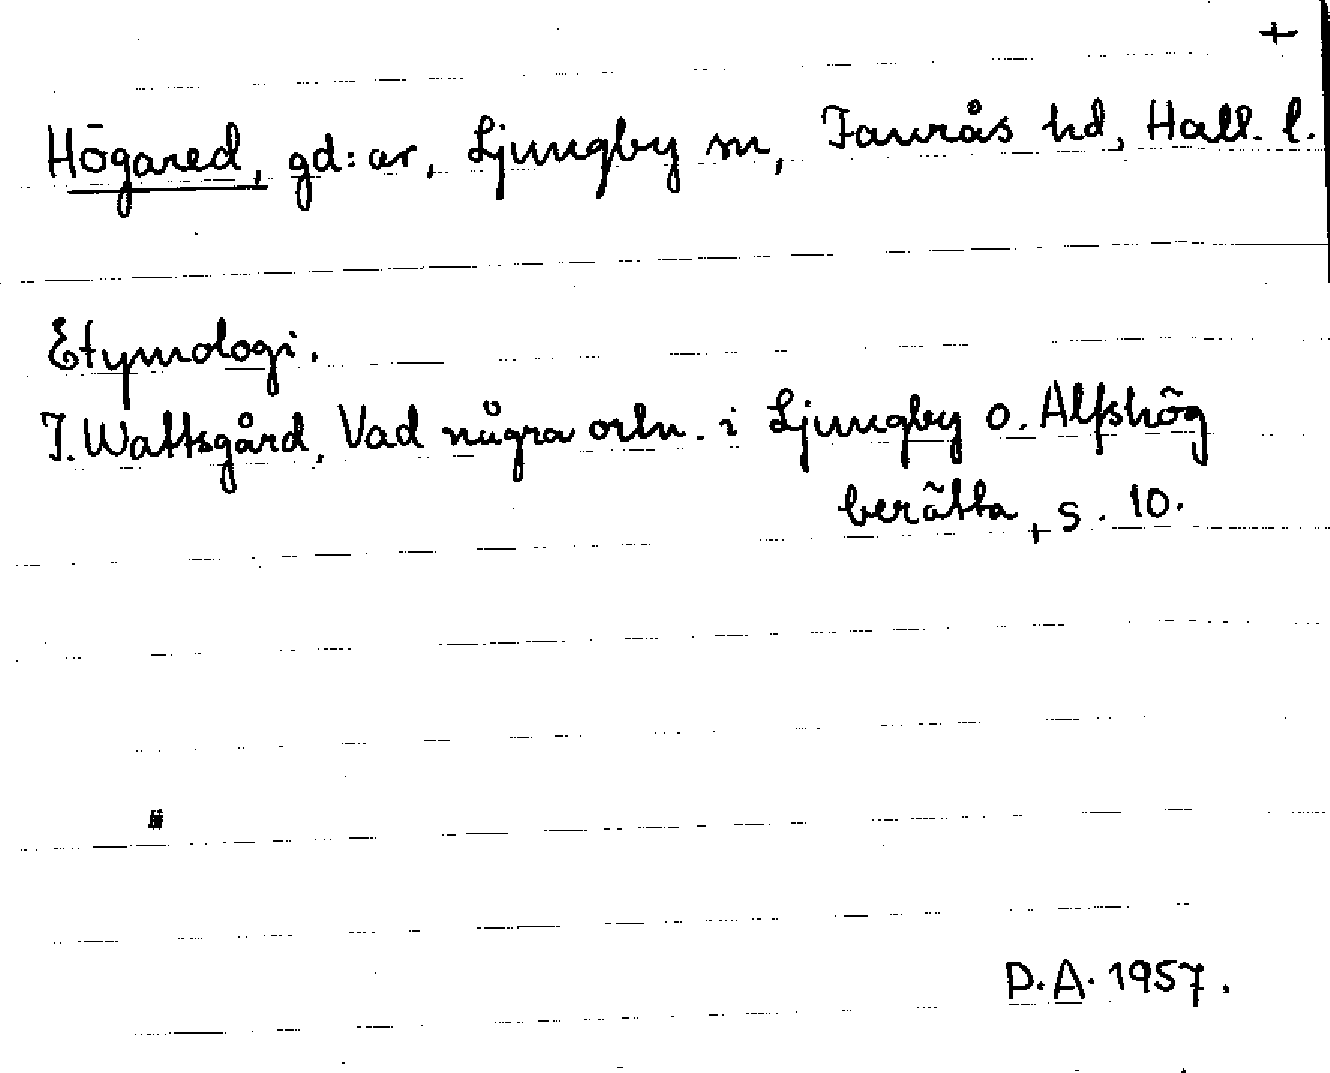 +
Högared, gd:ar, Ljungby sn, Faurås hd, Hall. l.
Etymologi.
J. Wattsgård, Vad några ortn. i Ljungby o. Alfshög
berätta, s. 10.
P.A. 1957.